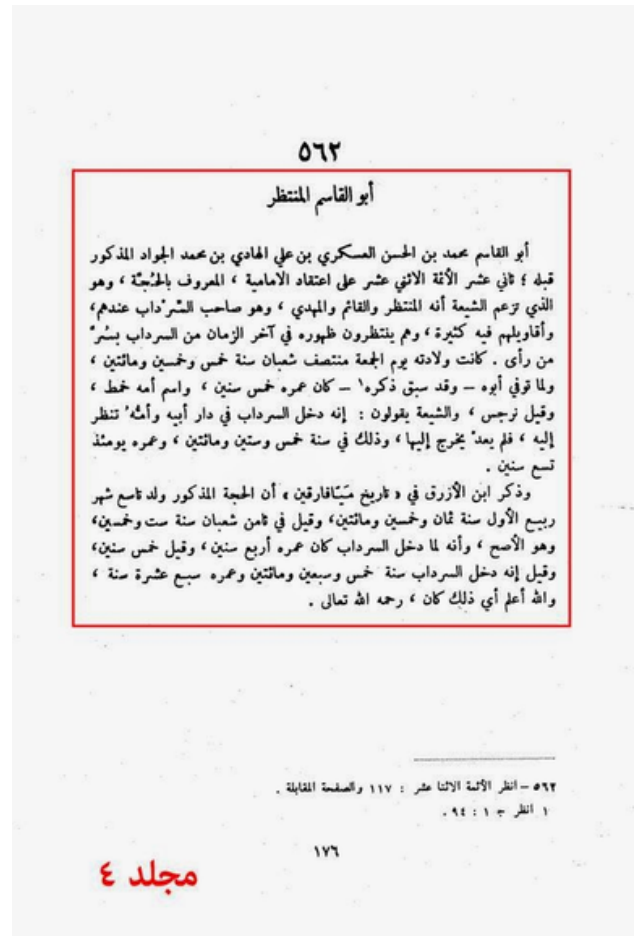 ٥٦٢
أبو القاسم المنتظر
أبو القاسم محمد بن الحسن العسكري بن علي الهادي بن محمد الجواد المذكور
قبله ؛ ثاني عشر الأئمة الاثني عشر على اعتقاد الامامية ، المعروف بالحُجّة ، وهو
الذي تزعم الشيعة أنه المنتظر والقائم والمهدي ، وهو صاحب السِّرْداب عندهم،
وأقاويلهم فيه كثيرة ، وهم ينتظرون ظهوره في آخر الزمان من السرداب بسُرَّ
من رأى . كانت ولادته يوم الجمعة منتصف شعبان سنة خمس وخمسين ومائتين ،
ولما توفي أبوه – وقد سبق ذكره١ – كان عمره خمس سنين ، واسم أمه خمط ،
وقيل نرجس ، والشيعة يقولون : إنه دخل السرداب في دار أبيه وأمُّهُ تنظر
إليه ، فلم يعدْ يخرج إليها ، وذلك في سنة خمس وستين ومائتين ، وعمره يومئذ
تسع سنين .
وذكر ابن الأزرق في « تاريخ مَيّافارقين » أن الحجة المذكور ولد تاسع شهر
ربيع الأول سنة ثمان وخمسين ومائتين، وقيل في ثامن شعبان سنة ست وخمسين،
وهو الأصح ، وأنه لما دخل السرداب كان عمره أربع سنين ، وقيل خمس سنين،
وقيل إنه دخل السرداب سنة خمس وسبعين ومائتين وعمره سبع عشرة سنة ،
والله أعلم أي ذلك كان ، رحمه الله تعالى .
٥٦٢ – انظر الأئمة الاثنا عشر : ١١٧ والصفحة المقابلة .
١ انظر ج ١ : ٩٤ .
١٧٦
مجلد ٤